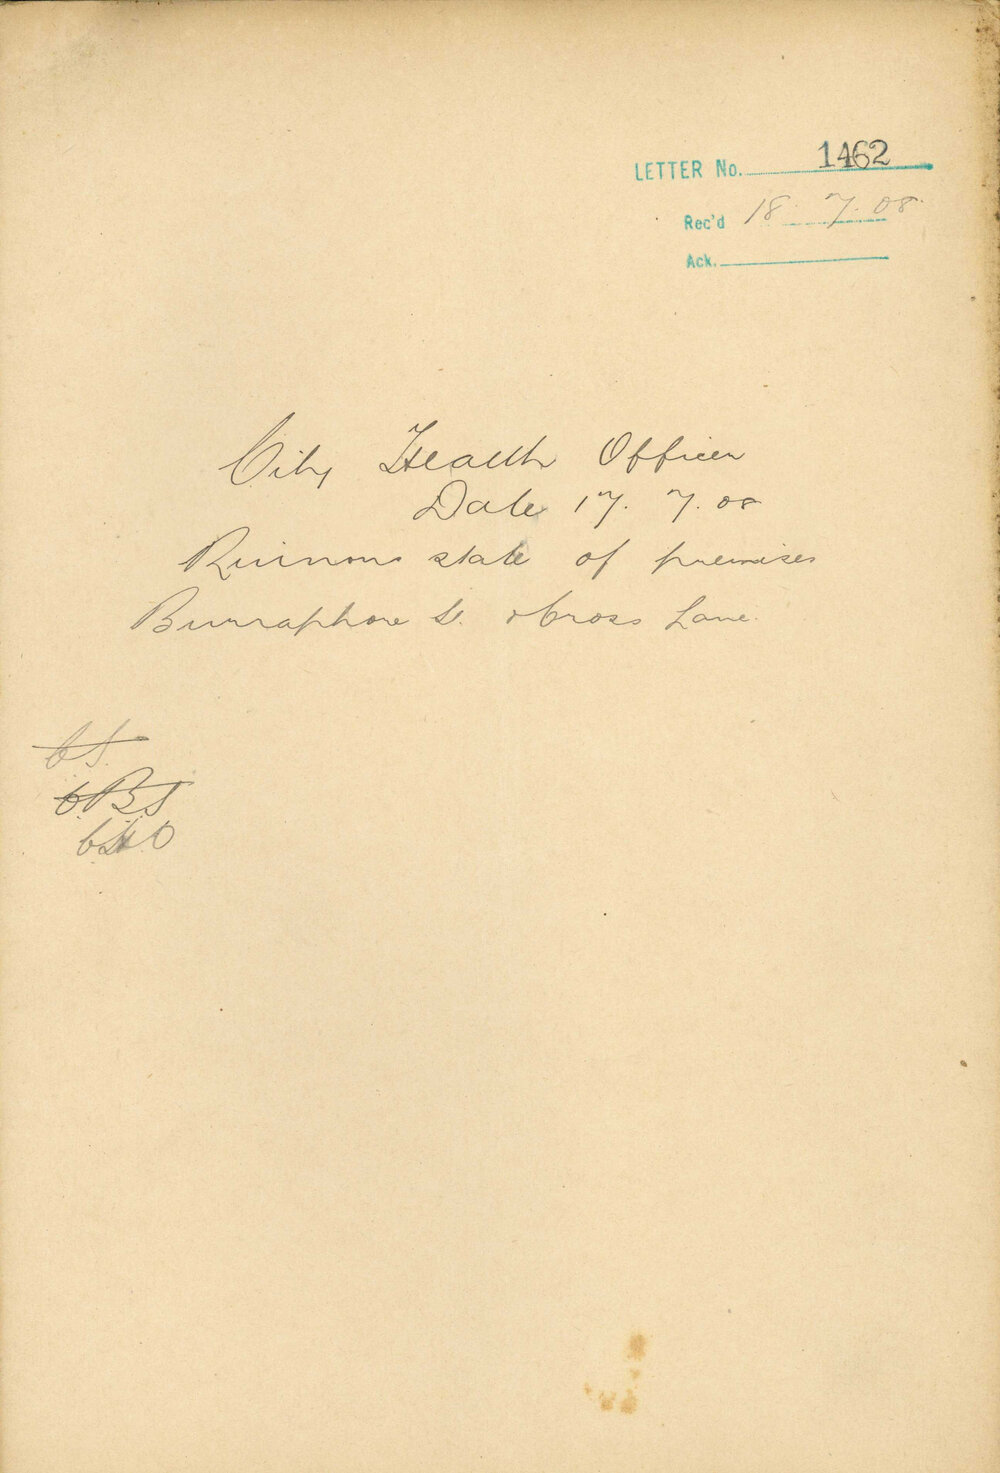 LETTER No. 1462
Rec'd 18. 7. 08.
Ack.
City Health Officer
Date 17. 7. 08
Ruinous state of premises
Burraphore St. & Cross Lane.
C.S.
C.B.S
C.H.O